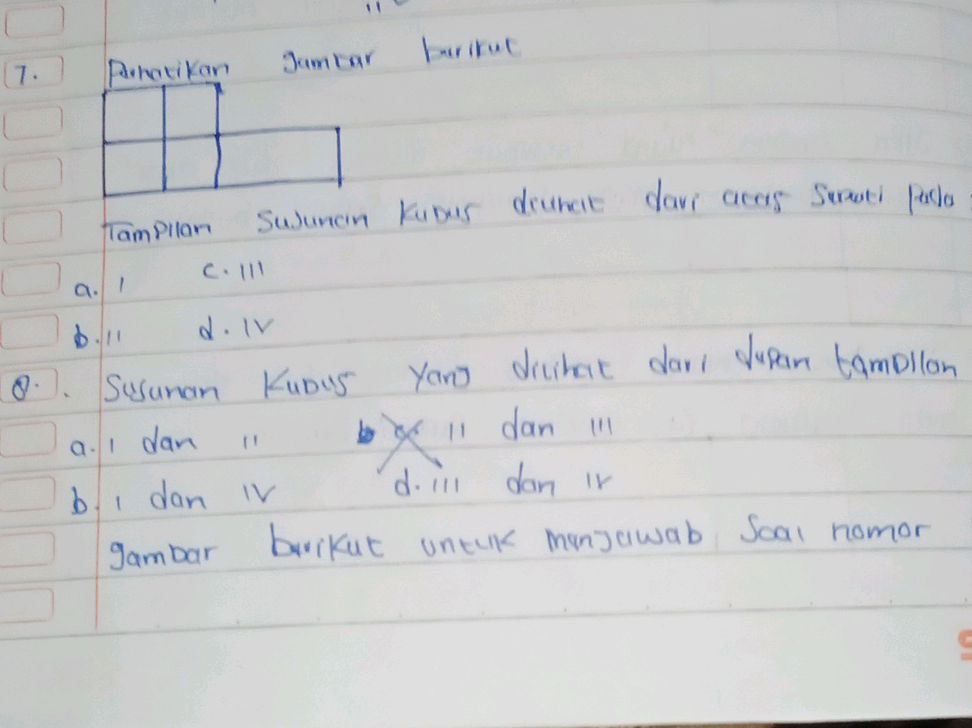 7. Perhatikan gambar berikut
Tampilan Susunan Kubus dilihat dari atas Seperti Pada :
a. I c. III
b. II d. IV
8. Susunan Kubus Yang dilihat dari depan tampilan
a. I dan II b c II dan III
b. I dan IV d. III dan IV
gambar berikut untuk menjawab Soal nomor